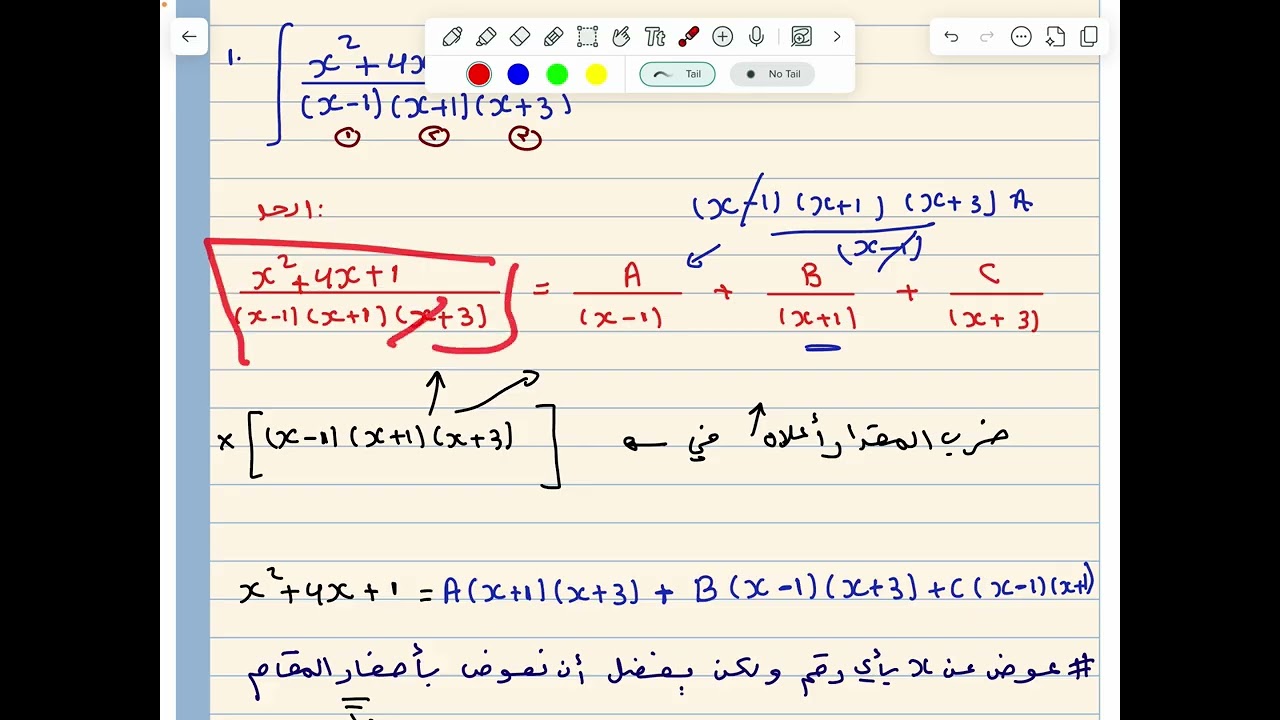 Tail No Tail
1. ∫ x² + 4x
(x-1) (x+1) (x+3)
① ② ③
الحل:
(x-1) (x+1) (x+3) A
(x-1)
x² + 4x + 1 = A + B + C
(x-1) (x+1) (x+3) (x-1) (x+1) (x+3)
× [(x-1) (x+1) (x+3)] ضرب المقدار أعلاه ↑ في
x² + 4x + 1 = A (x+1) (x+3) + B (x-1) (x+3) + C (x-1) (x+1)
# عوض عن x بأي رقم ولكن يفضل أن نعوض بأصفار المقام